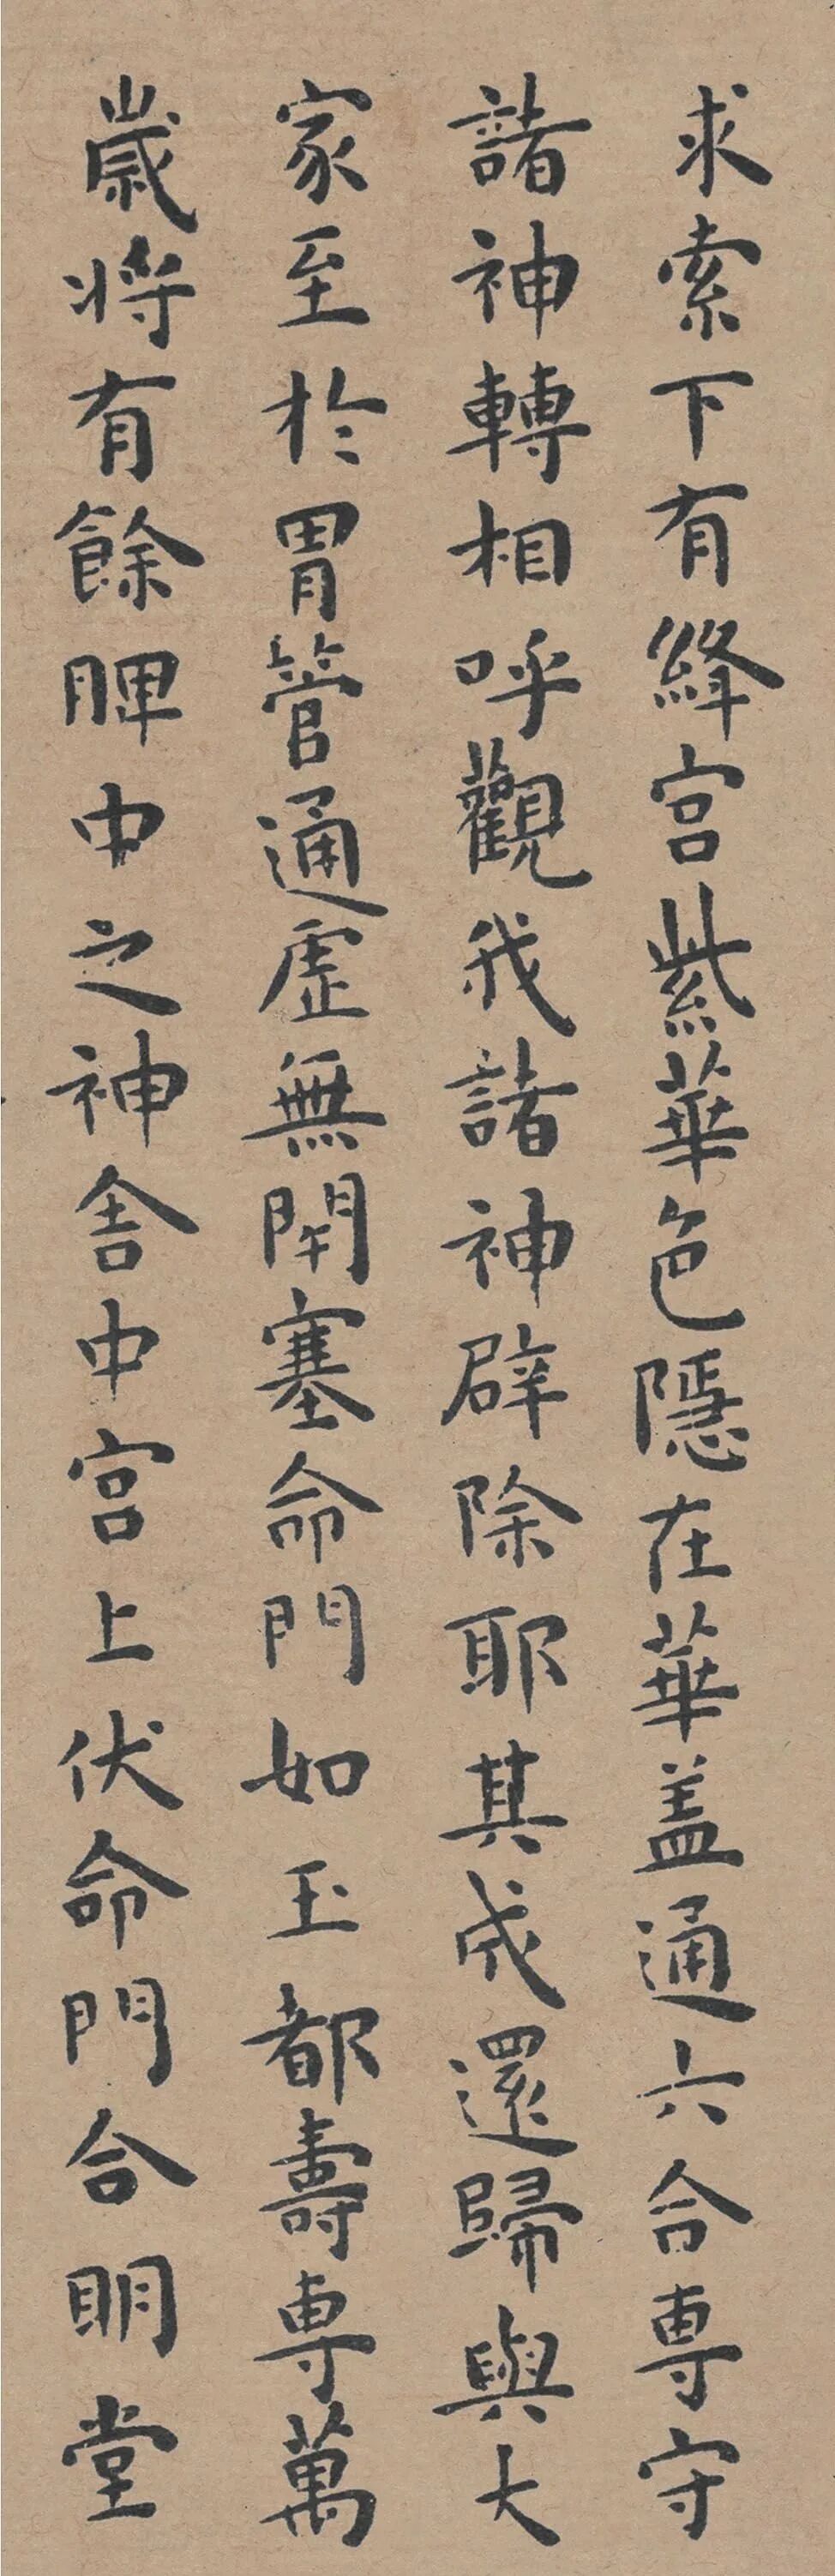 求索下有絳宮紫華色隱在華盖通六合專守
諸神轉相呼觀我諸神辟除耶其成還歸與大
家至於胃管通虛無閇塞命門如玉都壽專萬
歲將有餘脾中之神舍中宮上伏命門合明堂